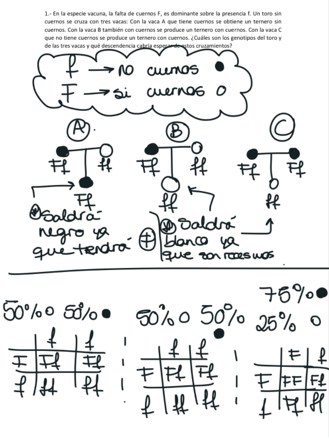 1.- En la especie vacuna, la falta de cuernos F, es dominante sobre la presencia f. Un toro sin
cuernos se cruza con tres vacas: Con la vaca A que tiene cuernos se obtiene un ternero sin
cuernos. Con la vaca B también con cuernos se produce un ternero con cuernos. Con la vaca C
que no tiene cuernos se produce un ternero con cuernos. ¿Cuáles son los genotipos del toro y
de las tres vacas y qué descendencia cabría esperar de estos cruzamientos?
f → no cuernos
F → si cuernos
A B C
Ff ff Ff ff Ff Ff
Ff ff ff
Saldrá Saldrá
negro ya blanco ya
que tendrá que son
75%
50% 50% 50% 50% 25%
f f f f F f
F Ff Ff F Ff Ff F FF Ff
f ff ff f ff ff f Ff ff